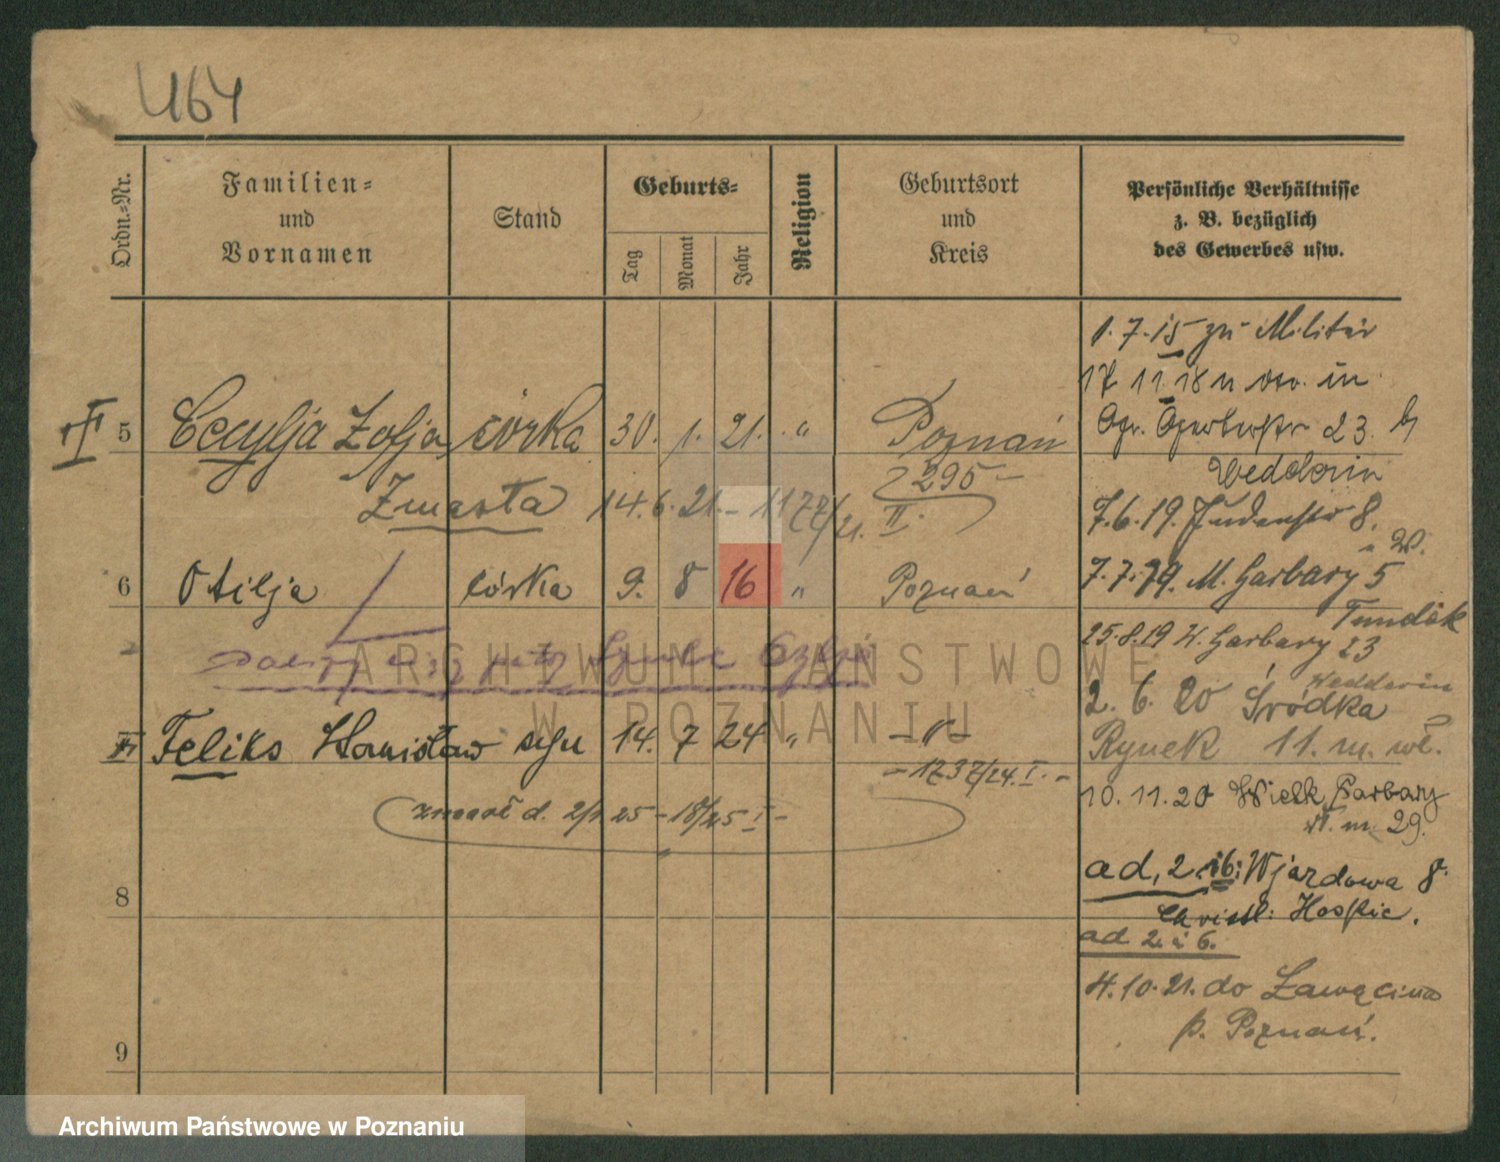 464
Ordn.-Nr.
Familien-
und
Vornamen
Stand
Geburts-
Tag
Monat
Jahr
Religion
Geburtsort
und
Kreis
Persönliche Verhältnisse
z. B. bezüglich
des Gewerbes usw.
5 Cecylja Zofja córka 30. 1. 21. " Poznań
Zmarła 14. 6. 21. - 1177/21. II.
295 -
6 Otilja córka 9. 8 16 " Poznań
III Feliks Stanisław syn 14. 7 24 " - " -
- 1737/24. I. -
zmarł d. 2/1 25 - 18/25 I -
8
9
1. 7. 15 zu Militär
17 11. 18 in
23.
Wedderin
7. 6. 19. Judenstr 8.
7. 7. 19. M. Garbary 5
25. 8. 19 W. Garbary 23
Wedderin
2. 6. 20 Śródka
Rynek 11. m. wł.
10. 11. 20 Wielk Garbary
m. 29.
ad, 2. i 6: Wjazdowa 8.
Christl: Hospic.
ad 2. i 6.
4. 10. 21. do
p. Poznań.
ARCHIWUM PAŃSTWOWE
W POZNANIU
Archiwum Państwowe w Poznaniu